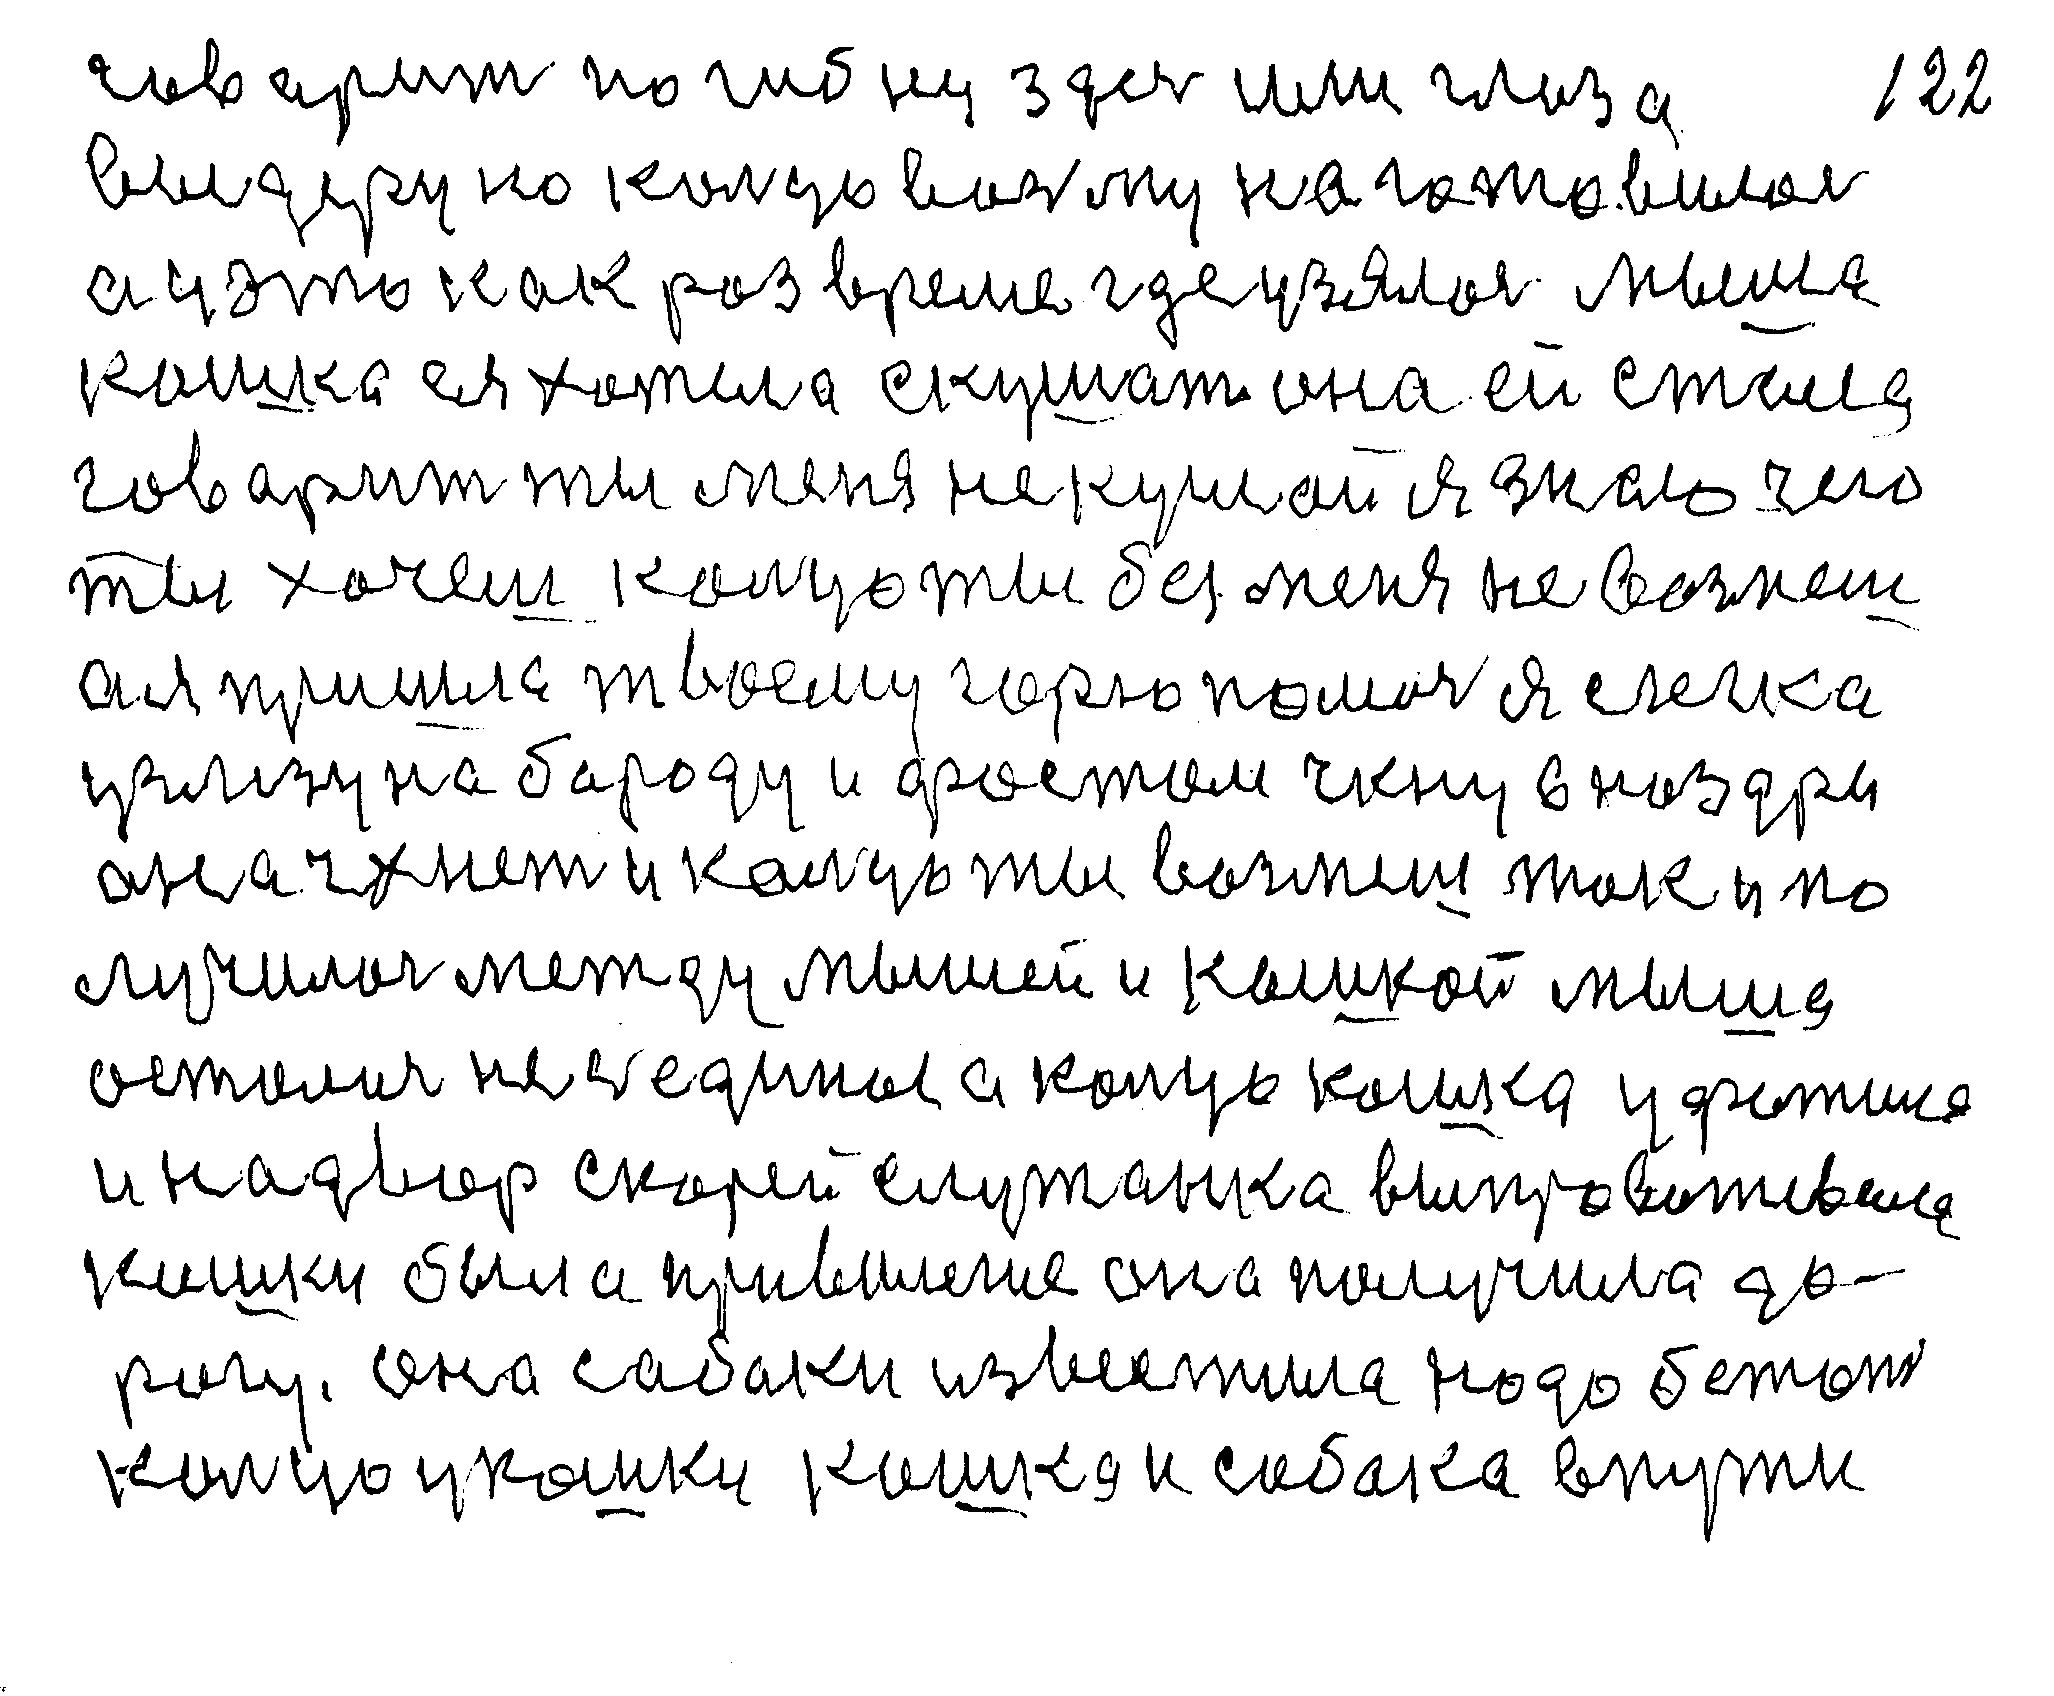 говарит погибну здеч или глаза 122
выдеру но кольцо возму наготовилас
а уэто как роз время где узялос мыша
кошка ея хотела скушат она ей стала
говарит ты меня не кушой я знаю чего
ты хочеш кольцо ты без меня не возмеш
а я пришла твоему горю помоч я слегка
узлизу на бароду и фостом чкну в ноздри
она ачхнет и кольцо ты возмеш так и по
лучилос между мышей и кошкой мыша
осталас не седина а кольцо кошка уфотила
и на двор скорей служанка випровотывала
кошки была привилегие она получила до-
рогу. она сабаки известила надо бежат
кольцо укошки кошка и собака в пути